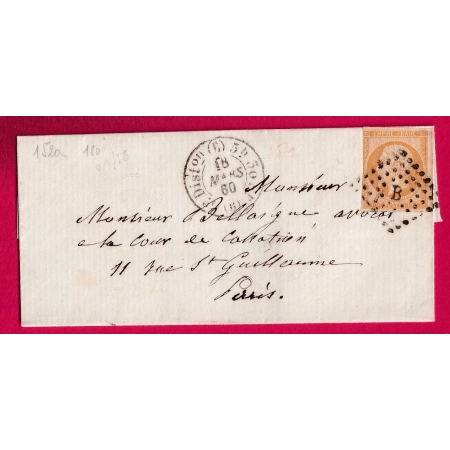 152a 180
Diston (E) 5e 30
18
MARS
60
(B)
EMPIRE FRANC
B
Monsieur
Monsieur Bellaigue avocat
a la cour de cassation
11 rue St Guillaume
Paris.